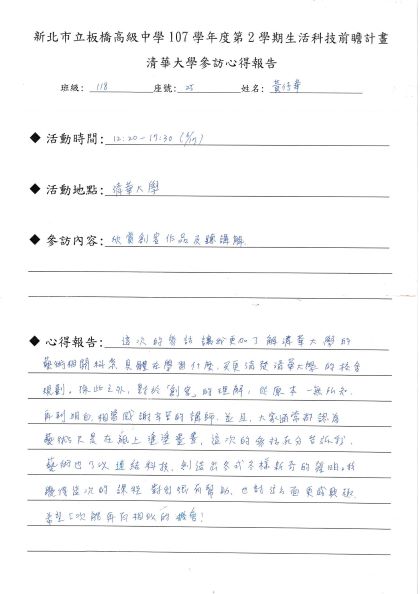 新北市立板橋高級中學107學年度第2學期生活科技前瞻計畫
清華大學參訪心得報告
班級：118 座號：25 姓名：黃
◆ 活動時間：12:20-17:30
◆ 活動地點：清華大學
◆ 參訪內容：欣賞創客作品及聽講解
◆ 心得報告：這次的參訪讓我更加了解清華大學的
藝術相關科系具體在學習什麼，更清楚清華大學的校舍
規劃。除此之外，對於「創客」的理解，從原本一無所知
再到明白，相當感謝市里的講師，並且，大家通常都認為
藝術只是在紙上塗塗畫畫，這次的參訪充分告訴我，
藝術也可以連結科技，創造出各式各樣新奇的發明。我
覺得這次的課程對我很有幫助，也對這方面更感興趣，
希望下次能再有相似的機會！